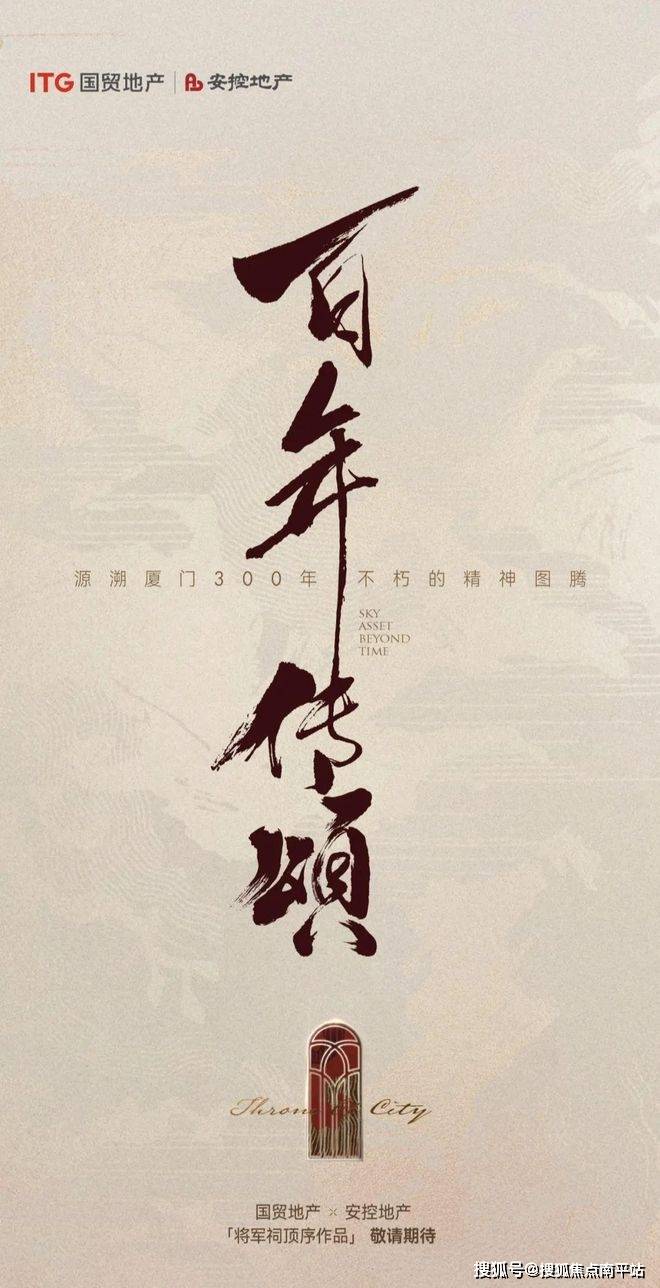 ITG 国贸地产 | 安控地产
百年传颂
源溯厦门300年 不朽的精神图腾
SKY
ASSET
BEYOND
TIME
City
国贸地产 × 安控地产
「将军祠顶序作品」 敬请期待
搜狐号@搜狐焦点南平站